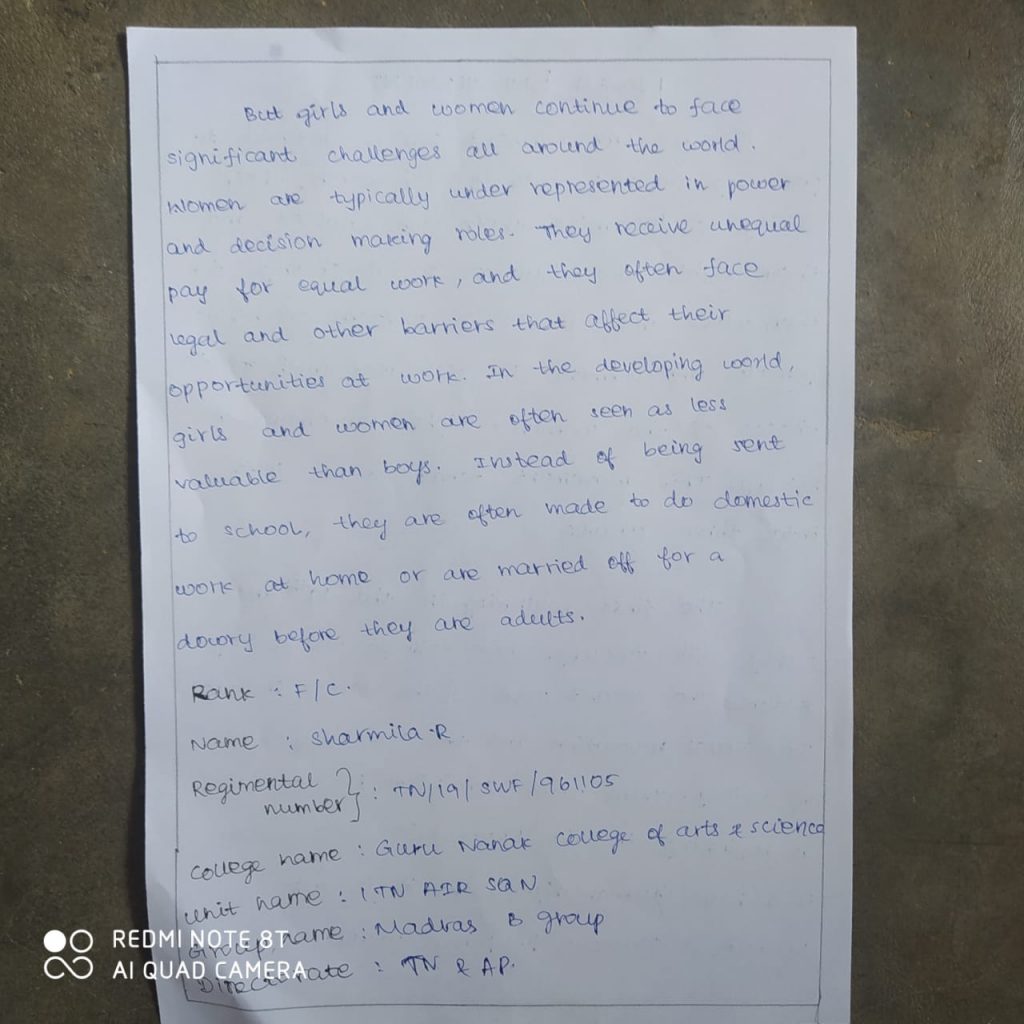 But girls and women continue to face
significant challenges all around the world.
Women are typically under represented in power
and decision making roles. They receive unequal
pay for equal work, and they often face
legal and other barriers that affect their
opportunities at work. In the developing world,
girls and women are often seen as less
valuable than boys. Instead of being sent
to school, they are often made to do domestic
work at home or are married off for a
dowry before they are adults.
Rank : F/C.
Name : Sharmila.R
Regimental
number } : TN/19/SWF/961105
College name : Guru Nanak college of arts & science
Unit name : 1 TN AIR SQN
Group name : Madras B group
Directorate : TN & AP.
REDMI NOTE 8T
AI QUAD CAMERA